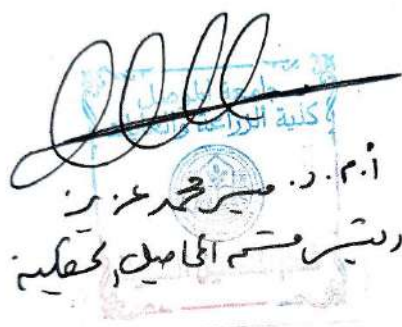 جامعة الموصل
كلية الزراعة والغابات
أ.م.د. محمد عزيز
رئيس قسم المحاصيل الحقلية